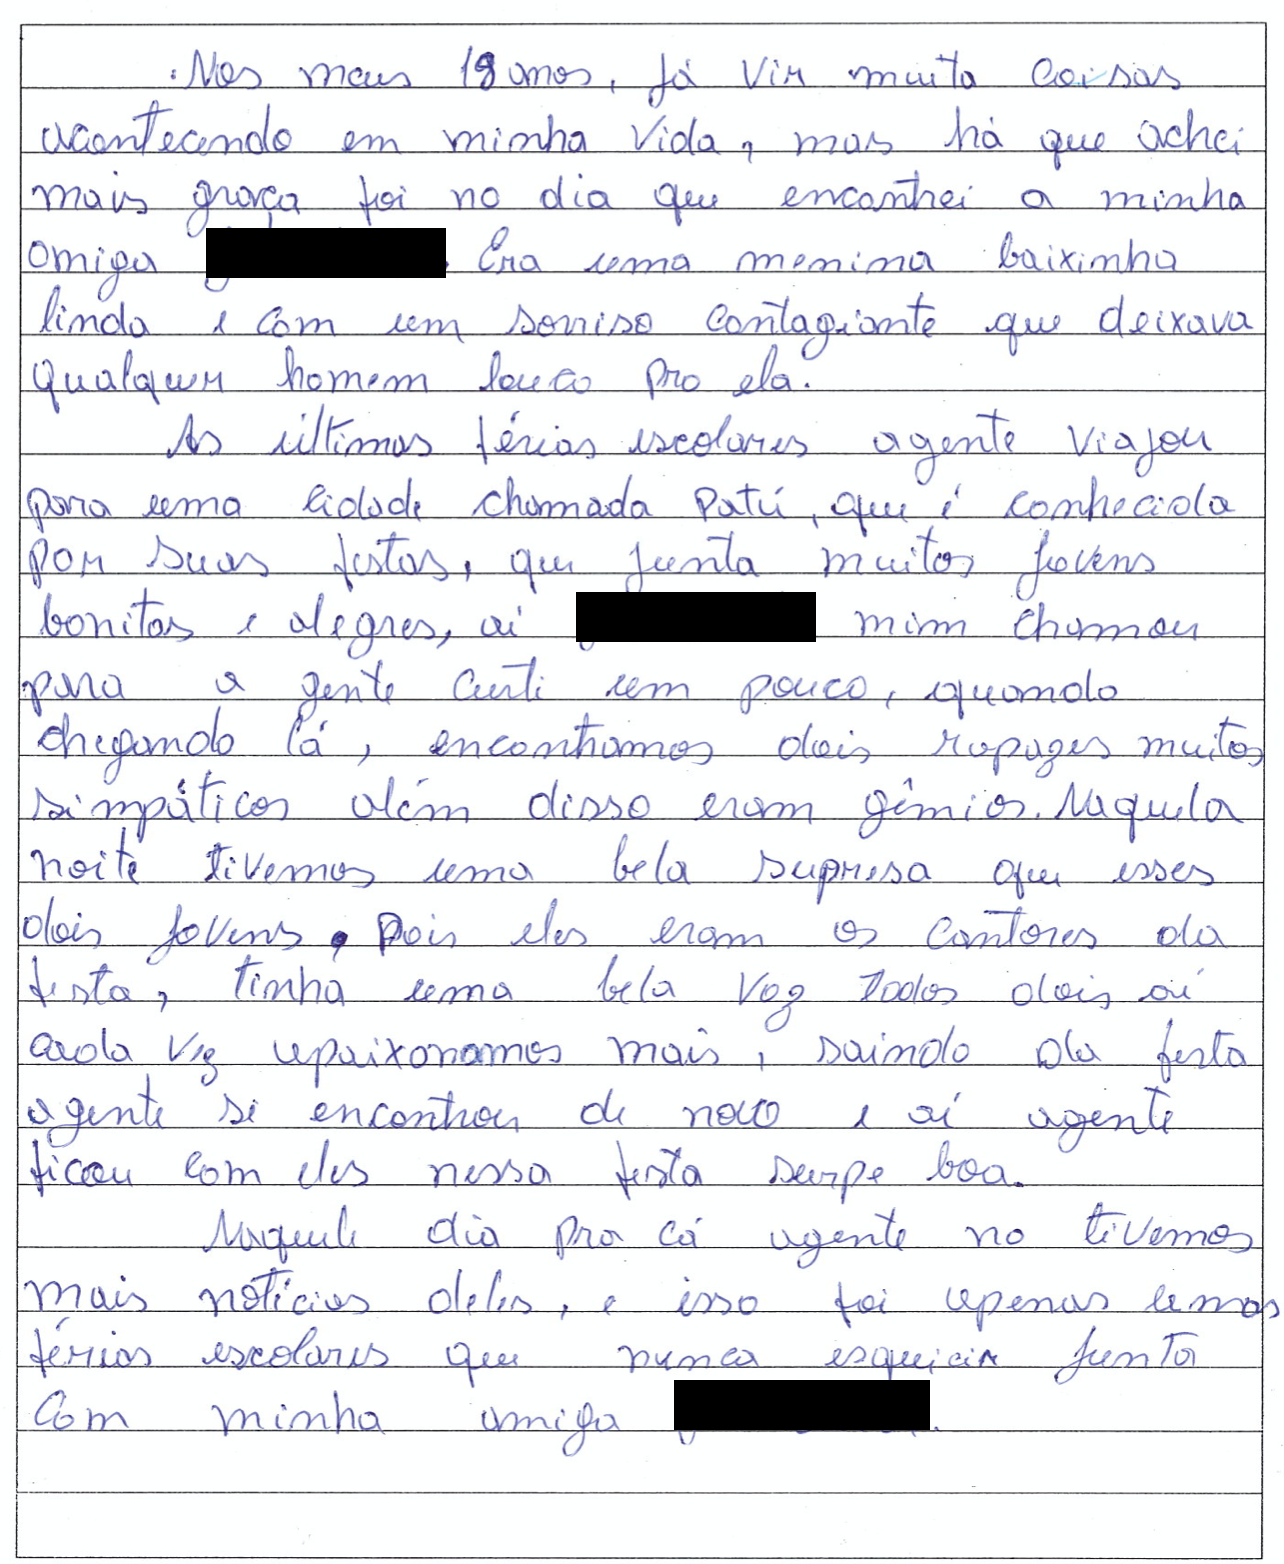 Nos meus 18 anos, já vir muita coisas
acontecendo em minha vida, mas há que achei
mais graça foi no dia que encontrei a minha
amiga . Era uma menina baixinha
linda e com um sorriso contagiante que deixava
qualquer homem louco pro ela.
As últimas férias escolares agente viajou
para uma cidade chamada Patú, que é conhecida
por suas festas, que junta muitos jovens
bonitos e alegres, aí mim chamou
para a gente curti um pouco, quando
chegando lá, encontramos dois rapazes muitos
simpáticos além disso eram gêmios. Naquela
noite tivemos uma bela supresa que esses
dois jovens, pois eles eram os cantores da
festa, tinha uma bela voz todos dois aí
cada vez apaixonamos mais, saindo da festa
agente si encontrou de novo e aí agente
ficou com eles nessa festa surpe boa.
Naquele dia pra cá agente no tivemos
mais notícias deles, e isso foi apenas umas
férias escolares que nunca esquicir junta
com minha amiga .